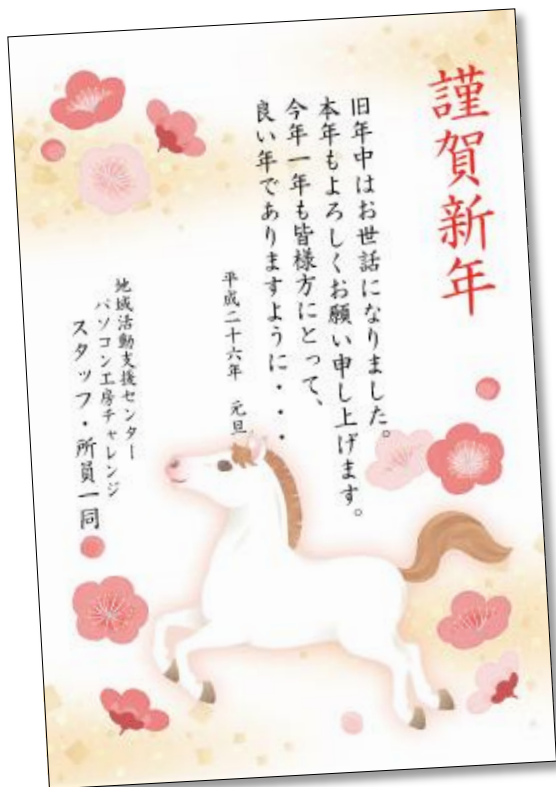 謹賀新年
旧年中はお世話になりました。
本年もよろしくお願い申し上げます。
今年一年も皆様方にとって、
良い年でありますように・・・
平成二十六年 元旦
地域活動支援センター
パソコン工房チャレンジ
スタッフ・所員一同